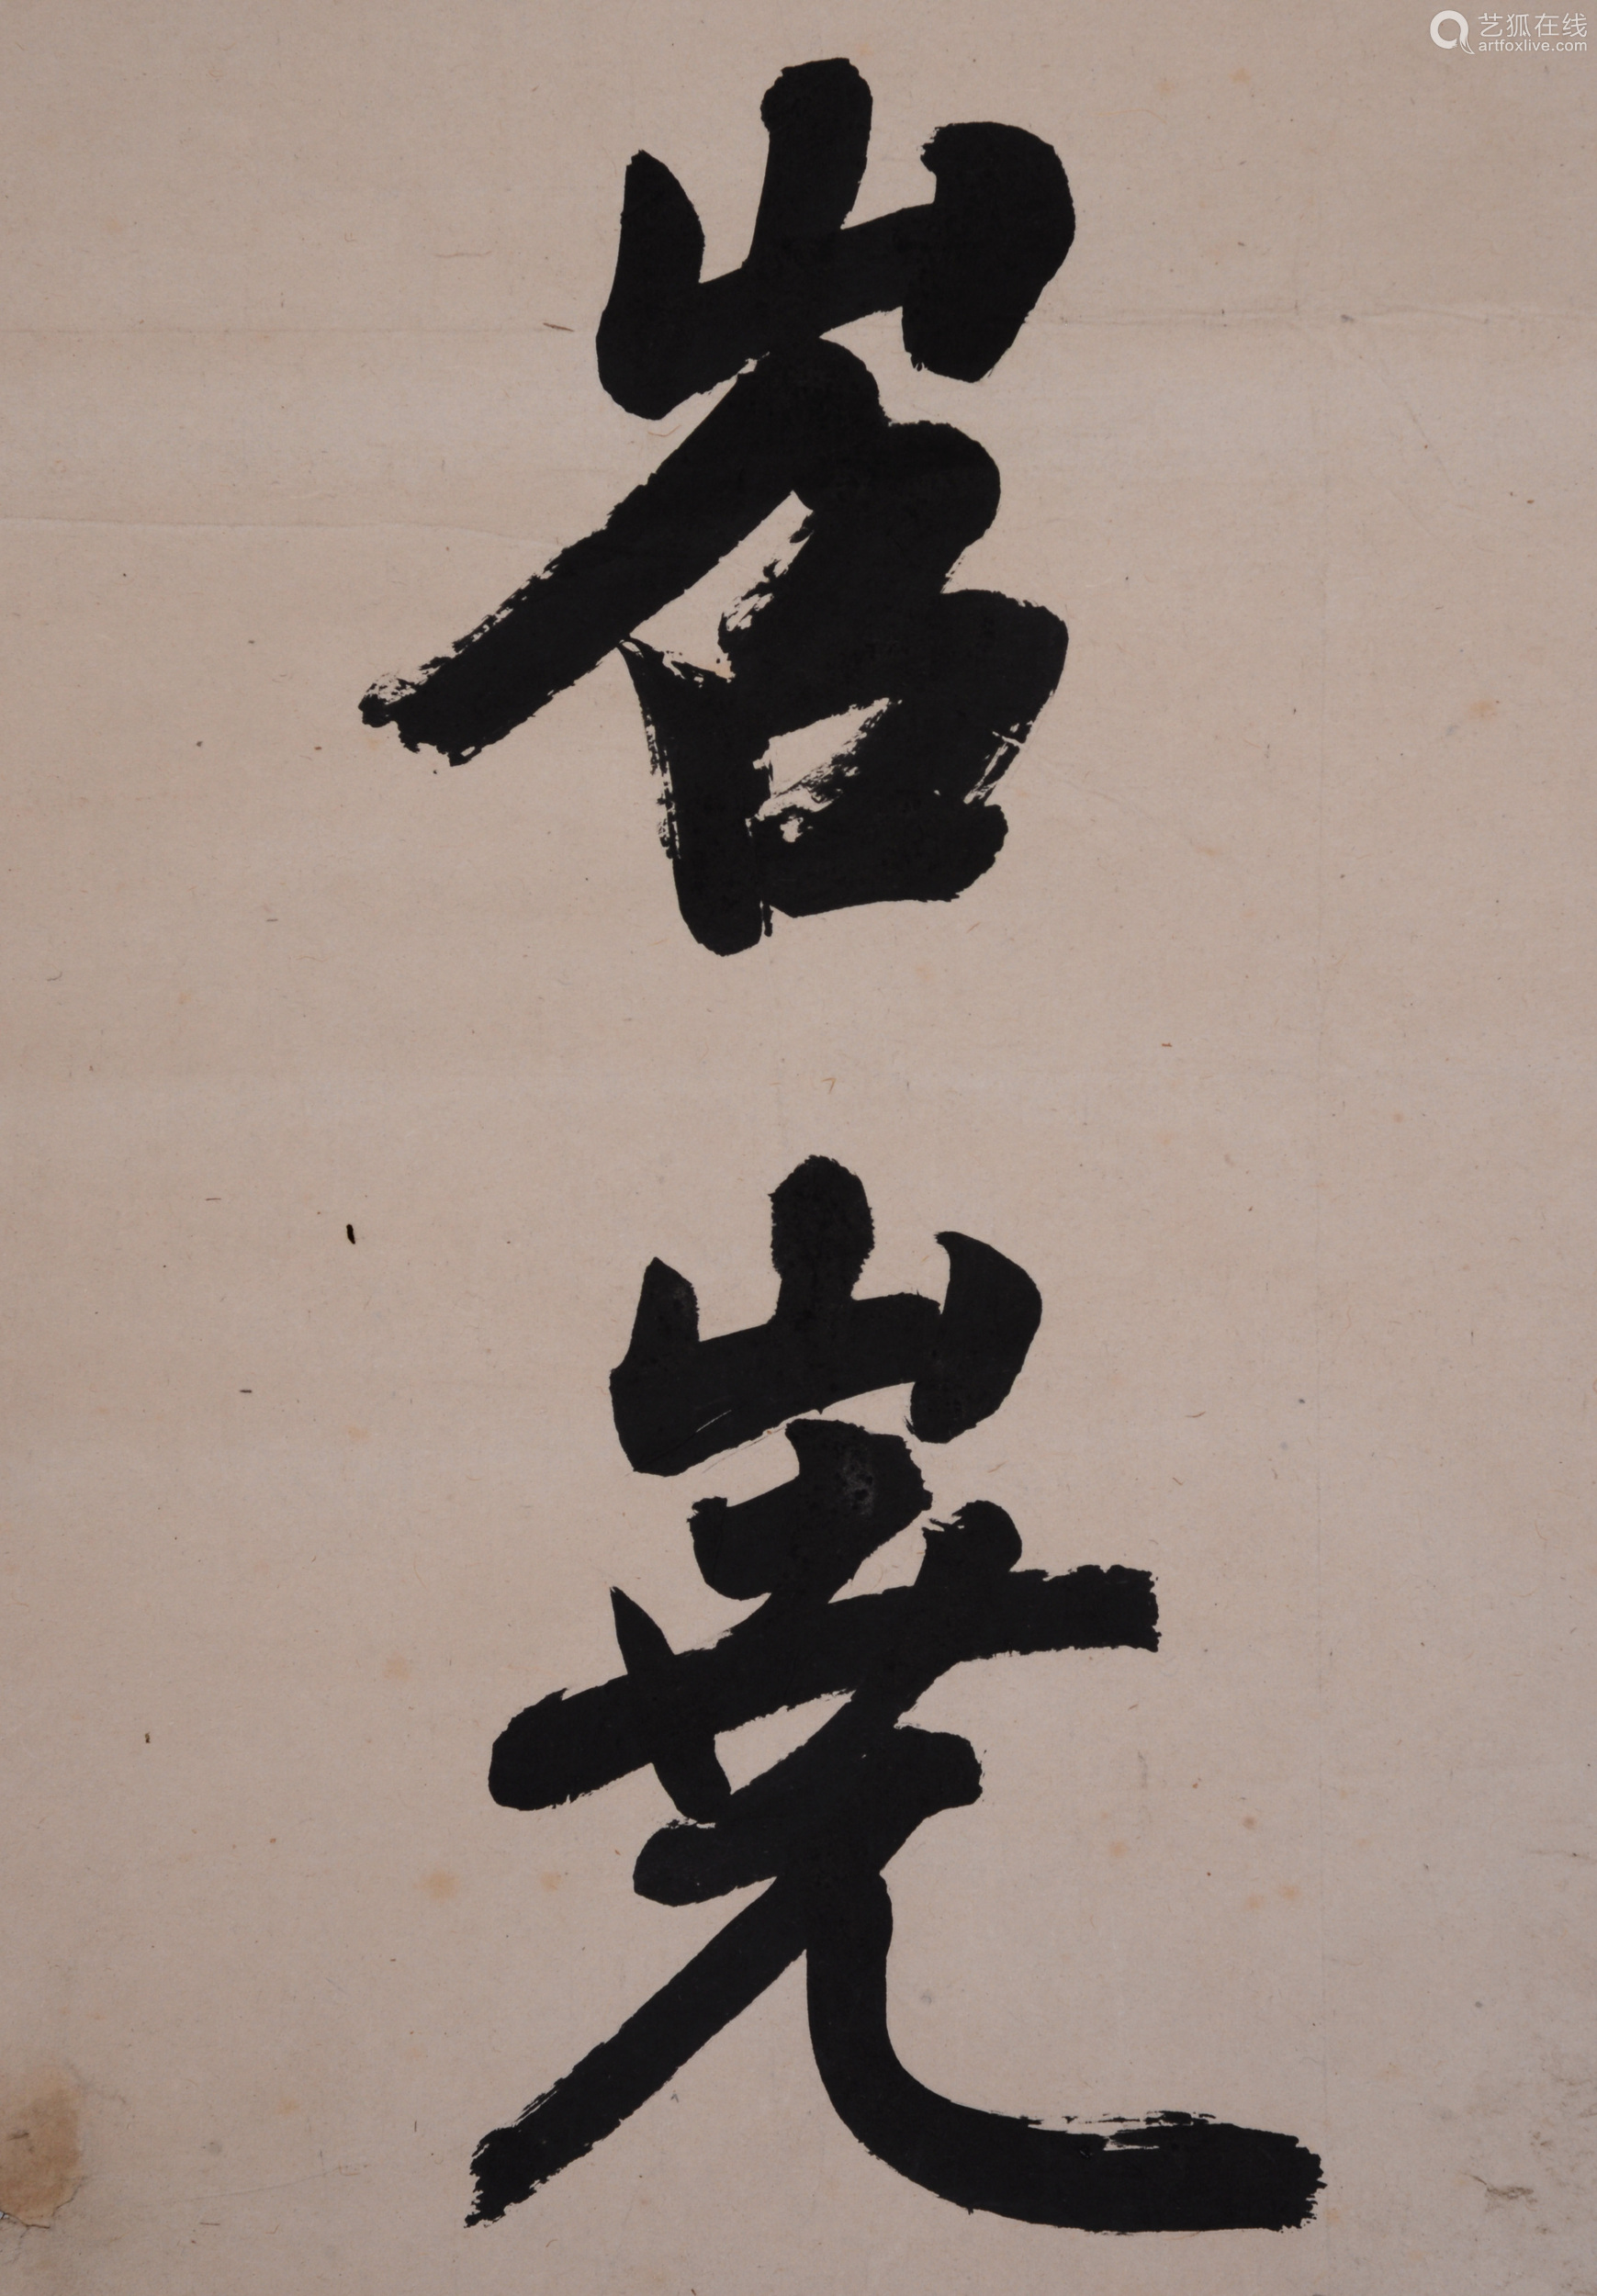 岧
嶤
艺狐在线
artfoxlive.com